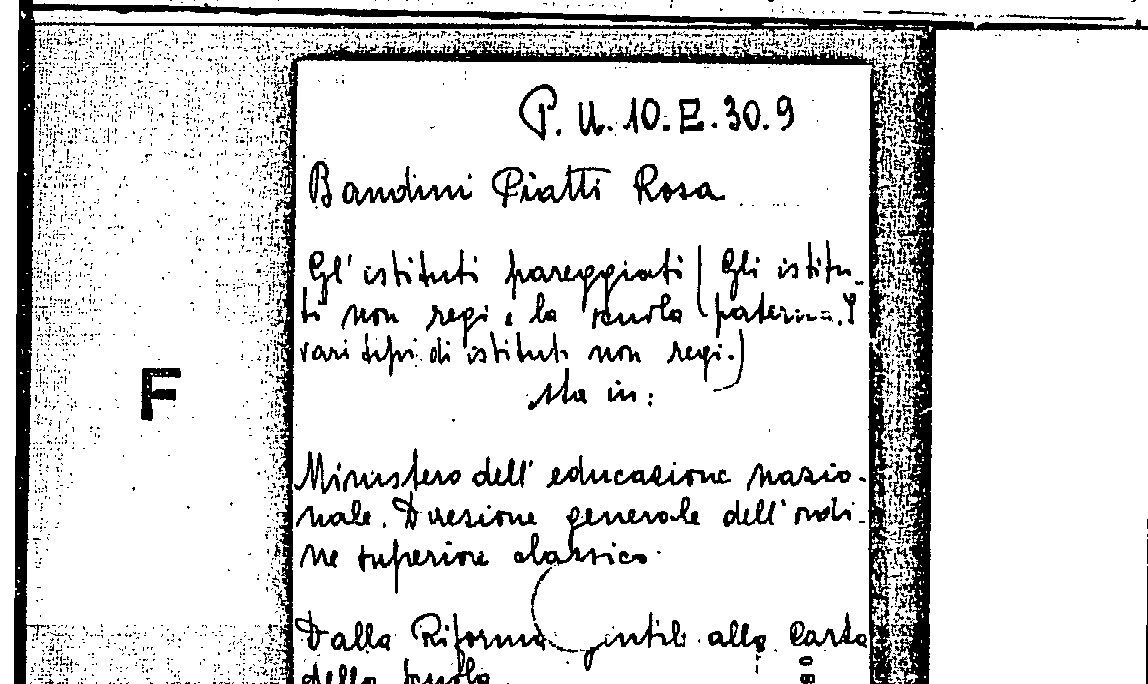 P. U. 10. E. 30. 9
Bandini Piatti Rosa
Gl' istituti pareggiati (Gli istitu-
ti non regi e la scuola paterna. I
vari tipi di istituti non regi.)
Sta in:
F
Ministero dell' educazione nazio-
nale. Direzione generale dell' ordi-
ne superiore classico.
Dalla Riforma Gentile alla Carta
della scuola.